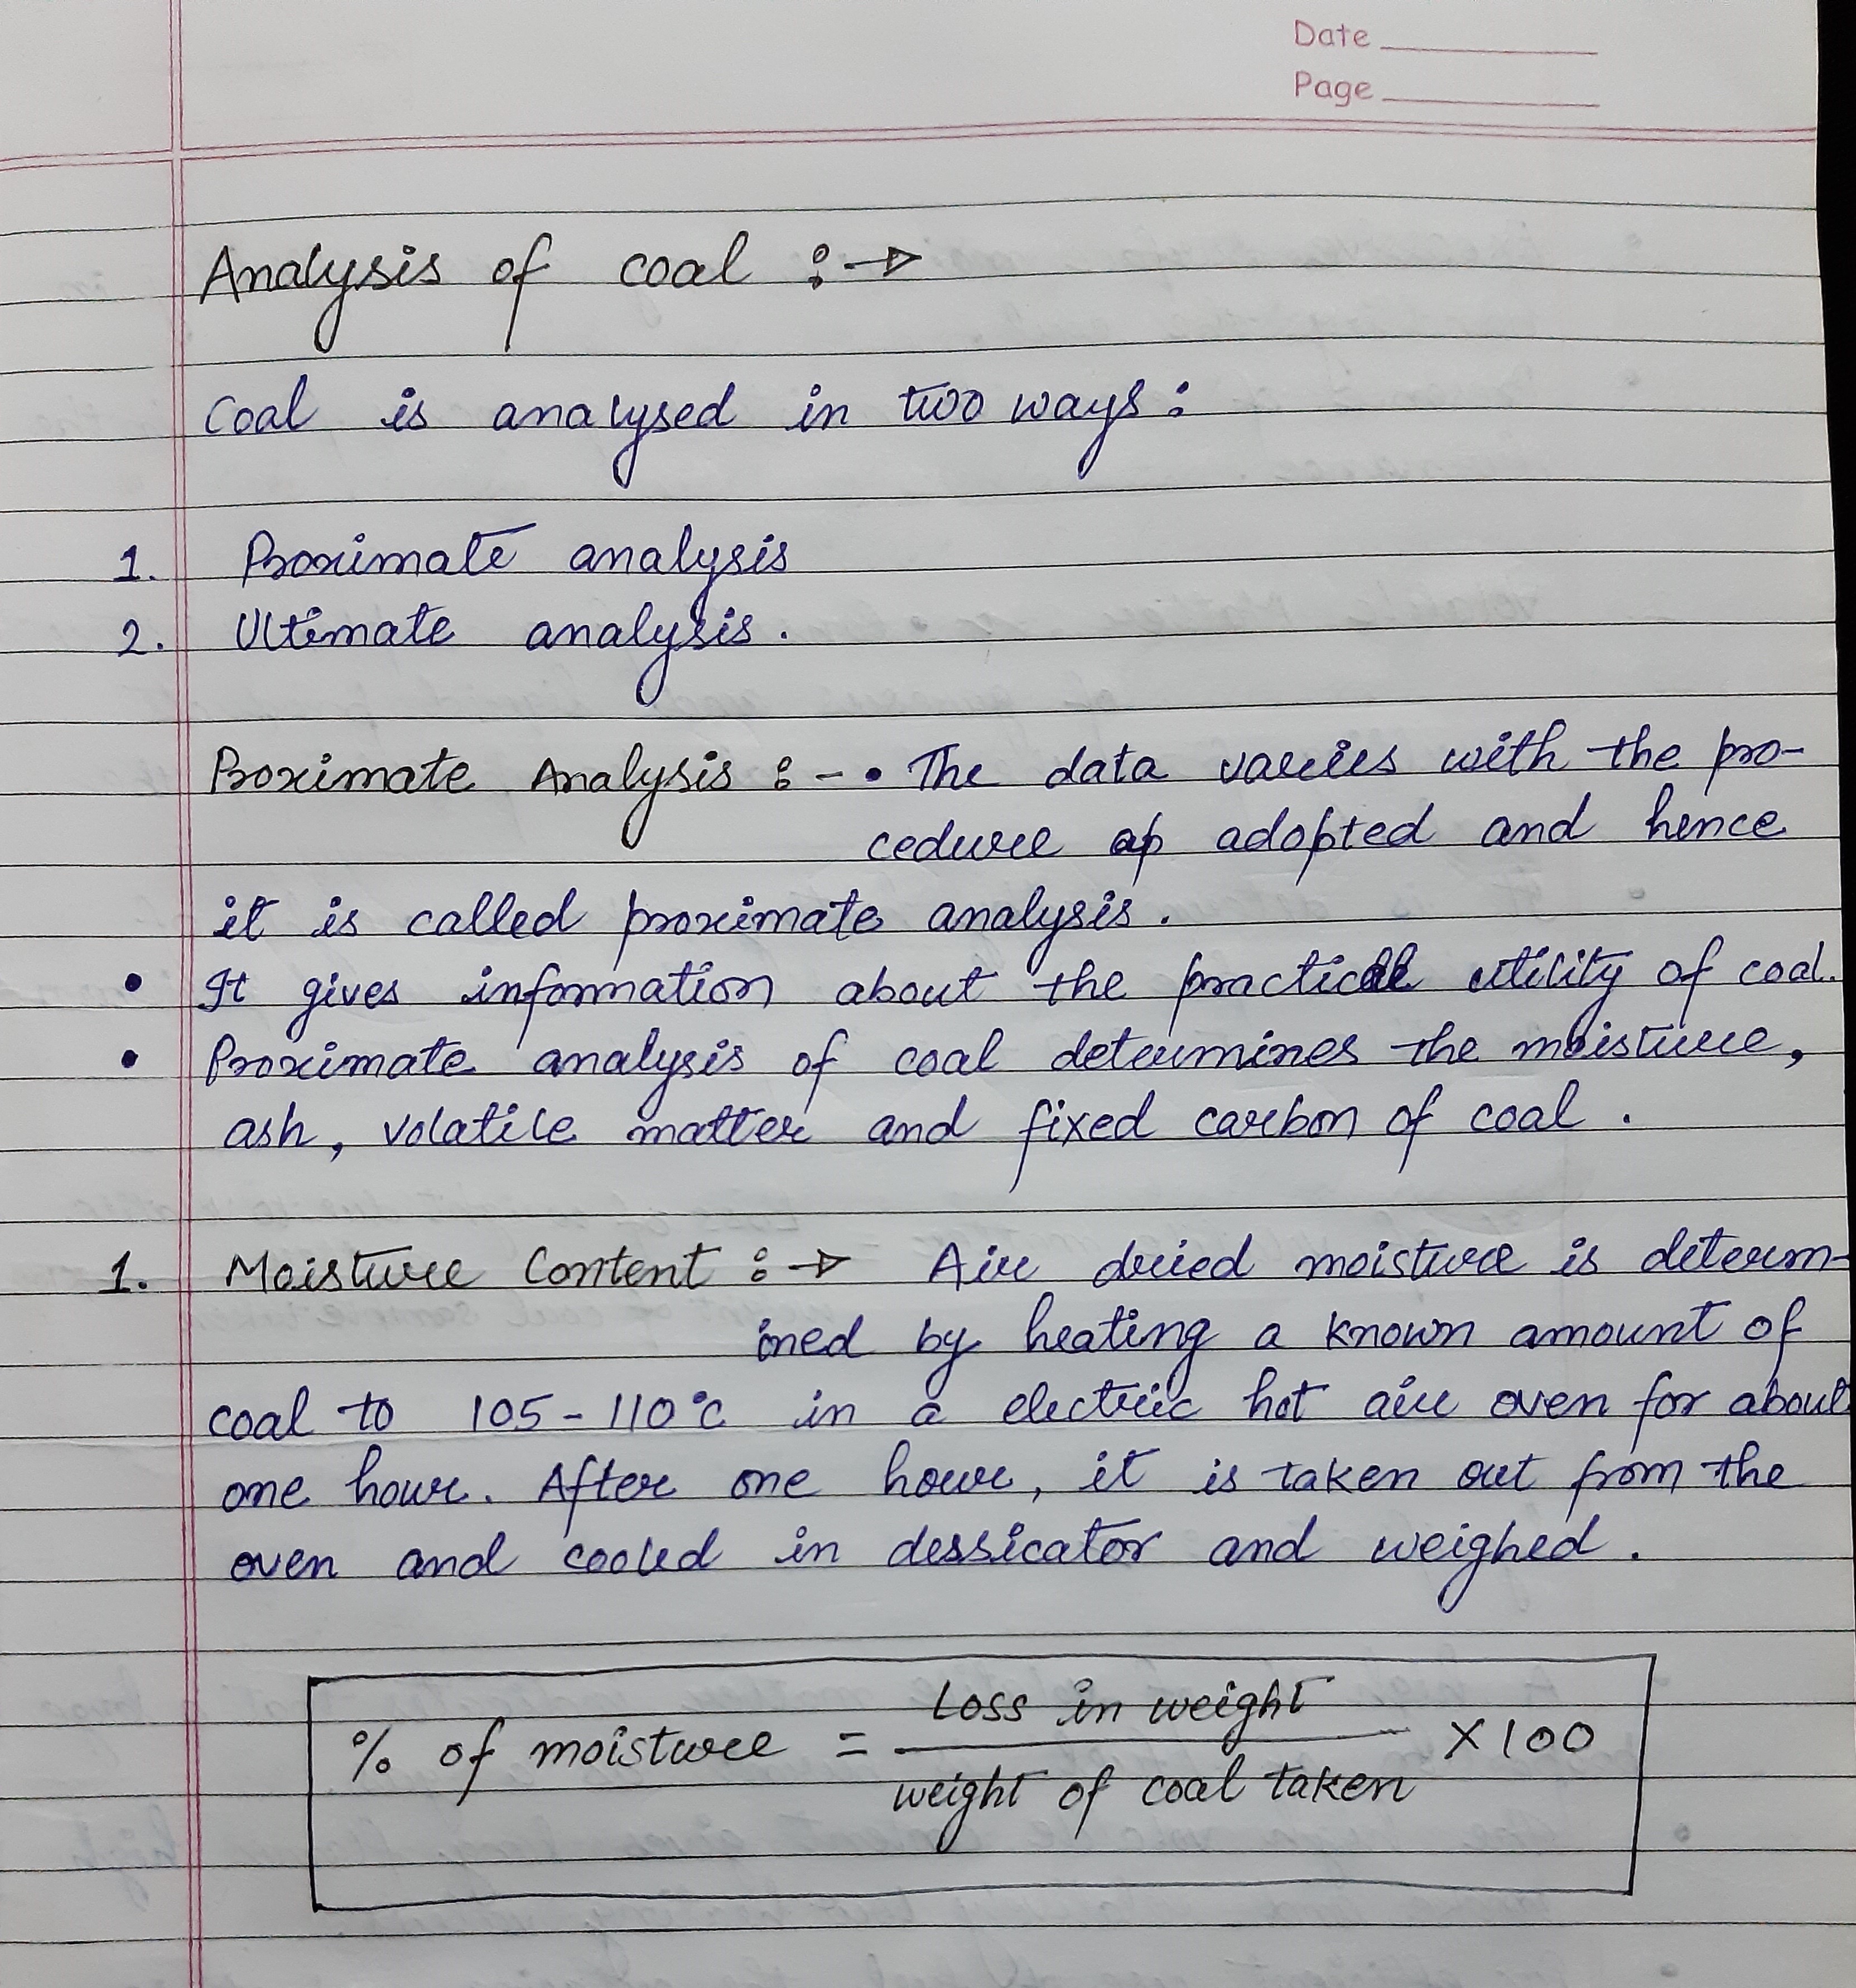 Date
Page
Analysis of coal :→
Coal is analysed in two ways:
1. Proximate analysis
2. Ultimate analysis.
Proximate Analysis :- • The data varies with the pro-
cedure ap adopted and hence
it is called proximate analysis.
• It gives information about the practical utility of coal.
• Proximate analysis of coal determines the moisture,
ash, volatile matter and fixed carbon of coal.
1. Moisture Content :→ Air dried moisture is determ-
ined by heating a known amount of
coal to 105-110°c in a electric hot air oven for about
one hour. After one hour, it is taken out from the
oven and cooled in dessicator and weighed.
Loss in weight
% of moisture = ——— X100
weight of coal taken